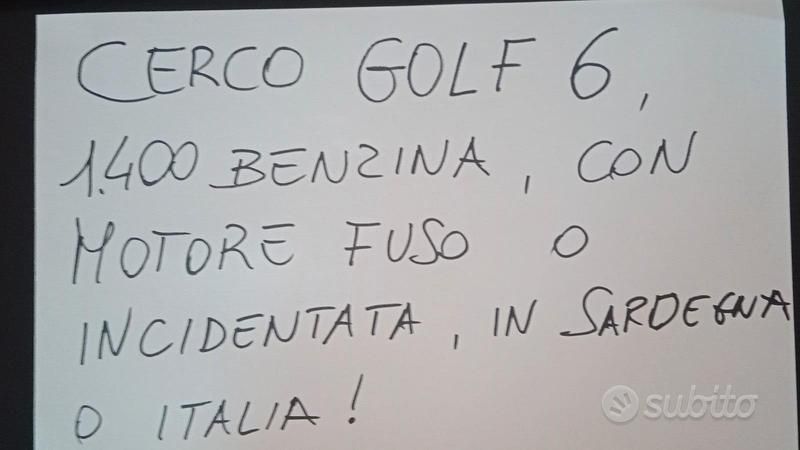 CERCO GOLF 6,
1.400 BENZINA, CON
MOTORE FUSO O
INCIDENTATA, IN SARDEGNA
O ITALIA!
subito